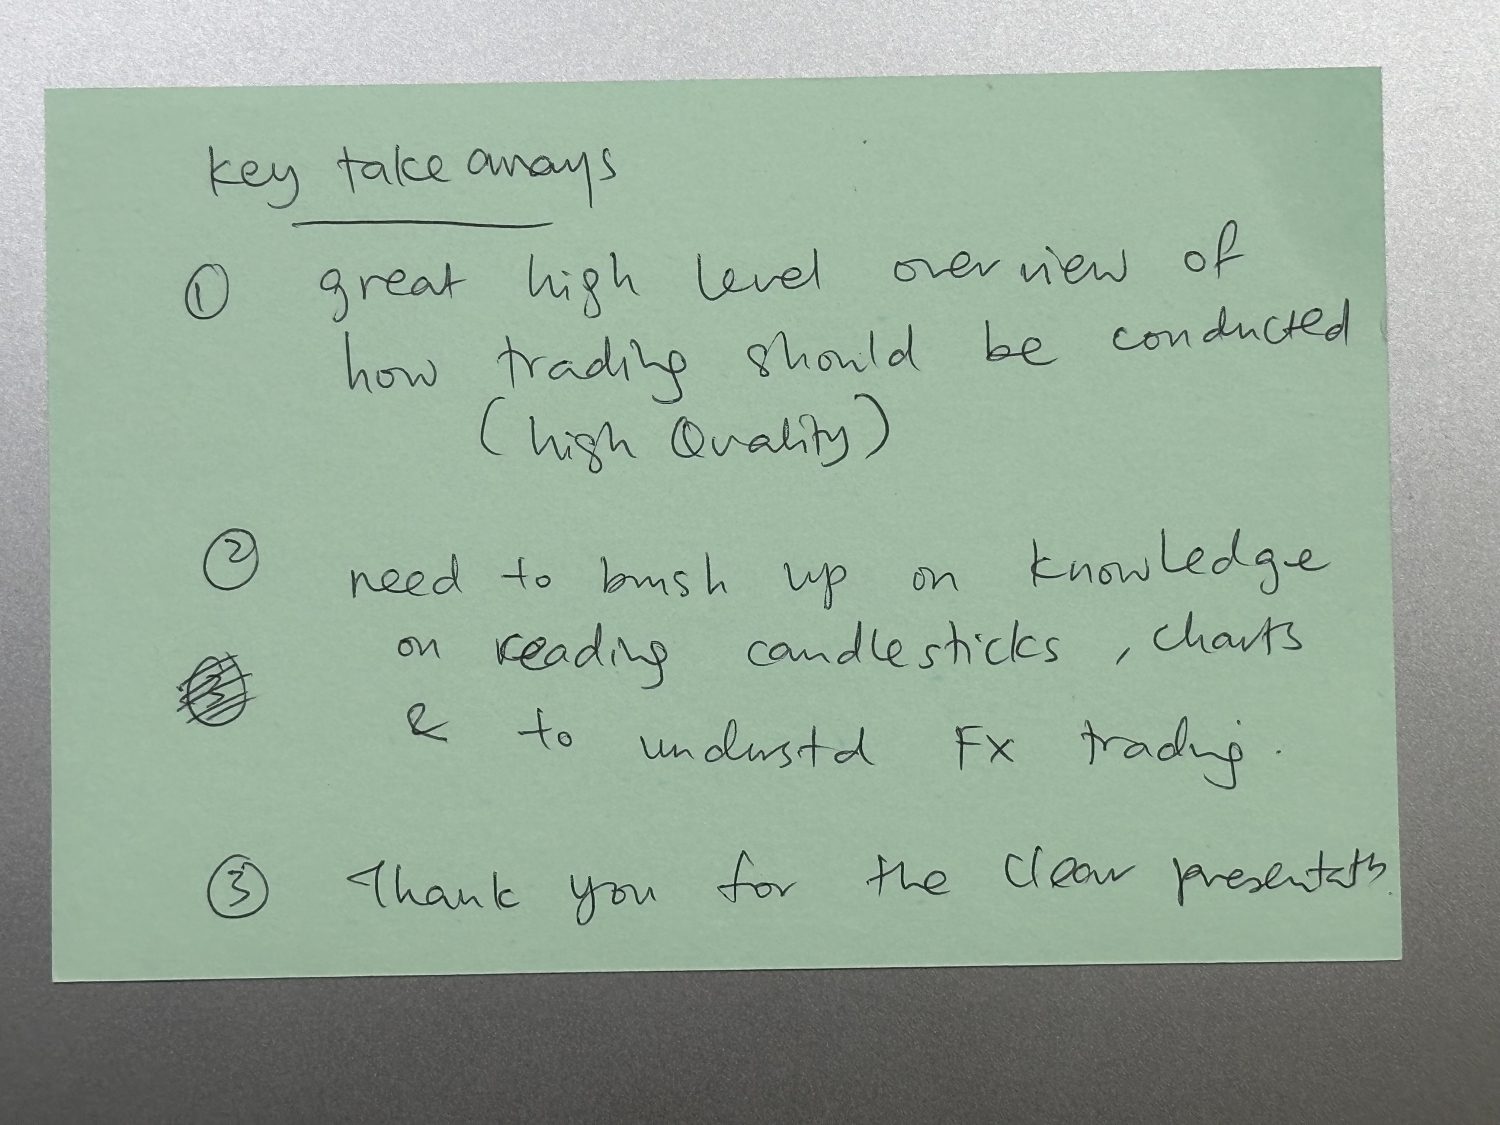 key take aways
① great high level overview of
how trading should be conducted
(high Quality)
② need to brush up on knowledge
on reading candlesticks, charts
& to understd FX trading.
③ Thank you for the clear